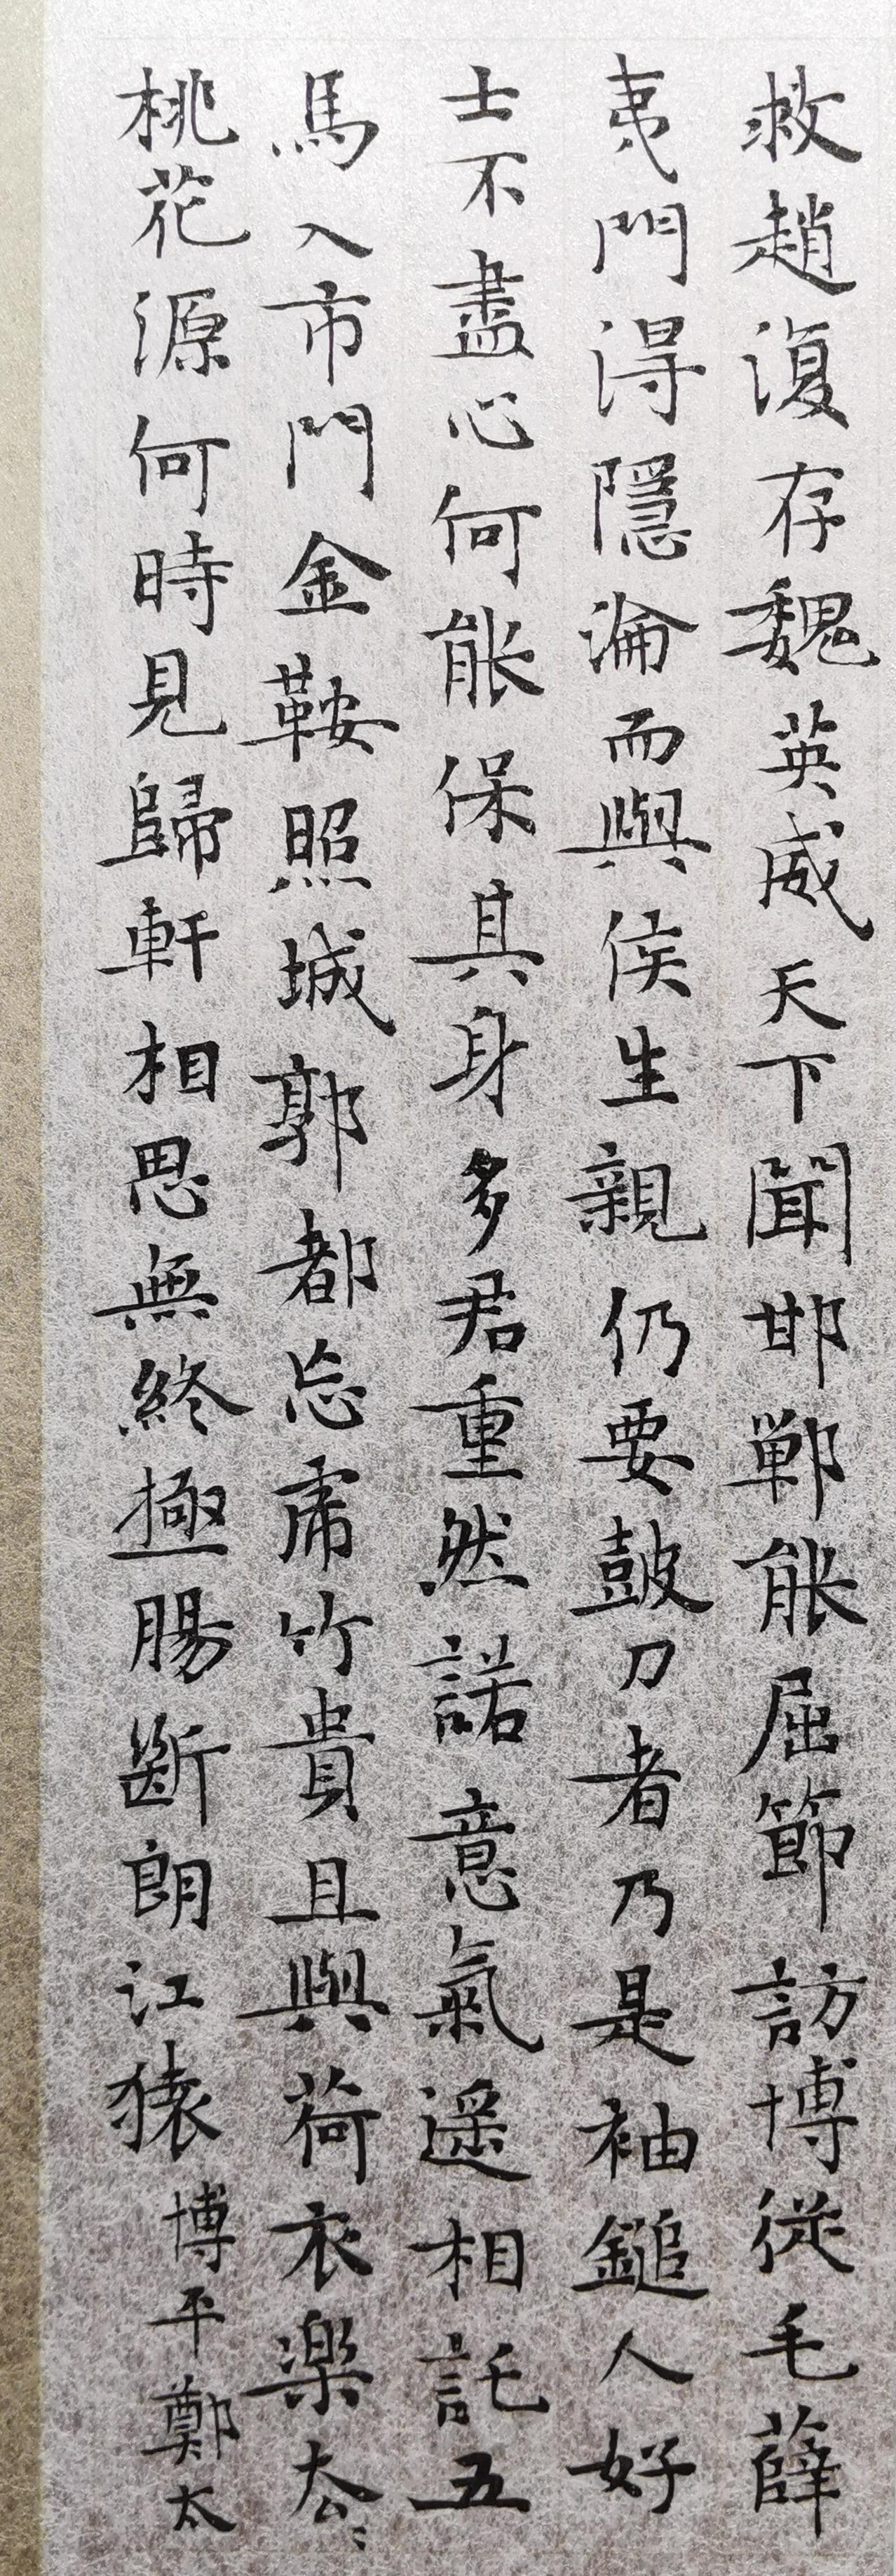 救趙復存魏英威天下聞邯鄲能屈節訪博從毛薛
夷門得隱淪而與侯生親仍要鼓刀者乃是袖鎚人好
士不盡心何能保其身多君重然諾意氣遥相託五
馬入市門金鞍照城郭都忘虎竹貴且與荷衣樂去〻
桃花源何時見歸軒相思無終極腸斷朗江猿 博平鄭太